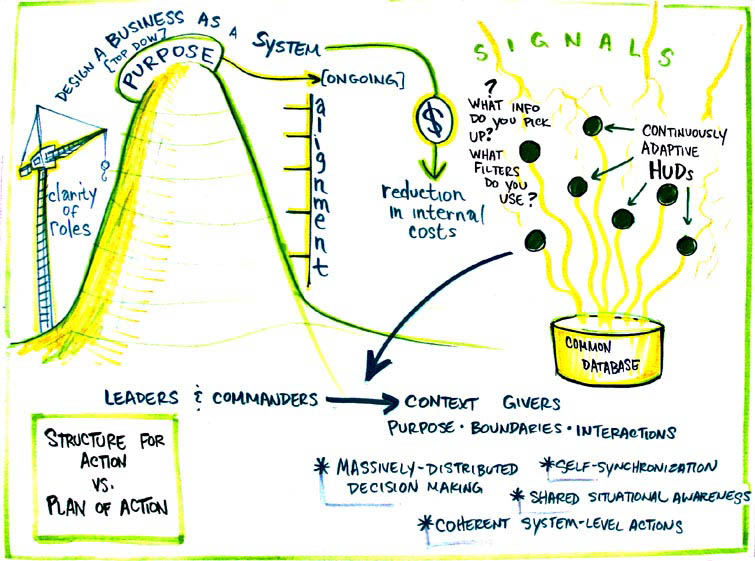 DESIGN A BUSINESS AS A SYSTEM
[TOP DOW]
PURPOSE
[ONGOING]
alignment
clarity
of
roles
$
reduction
in internal
costs
SIGNALS
?
WHAT INFO
DO YOU PICK
UP?
WHAT
FILTERS
DO YOU
USE?
CONTINUOUSLY
ADAPTIVE
HUDs
COMMON
DATABASE
LEADERS & COMMANDERS
CONTEXT GIVERS
PURPOSE · BOUNDARIES · INTERACTIONS
* MASSIVELY-DISTRIBUTED
DECISION MAKING
* SELF-SYNCHRONIZATION
* SHARED SITUATIONAL AWARENESS
* COHERENT SYSTEM-LEVEL ACTIONS
STRUCTURE FOR
ACTION
VS.
PLAN OF ACTION